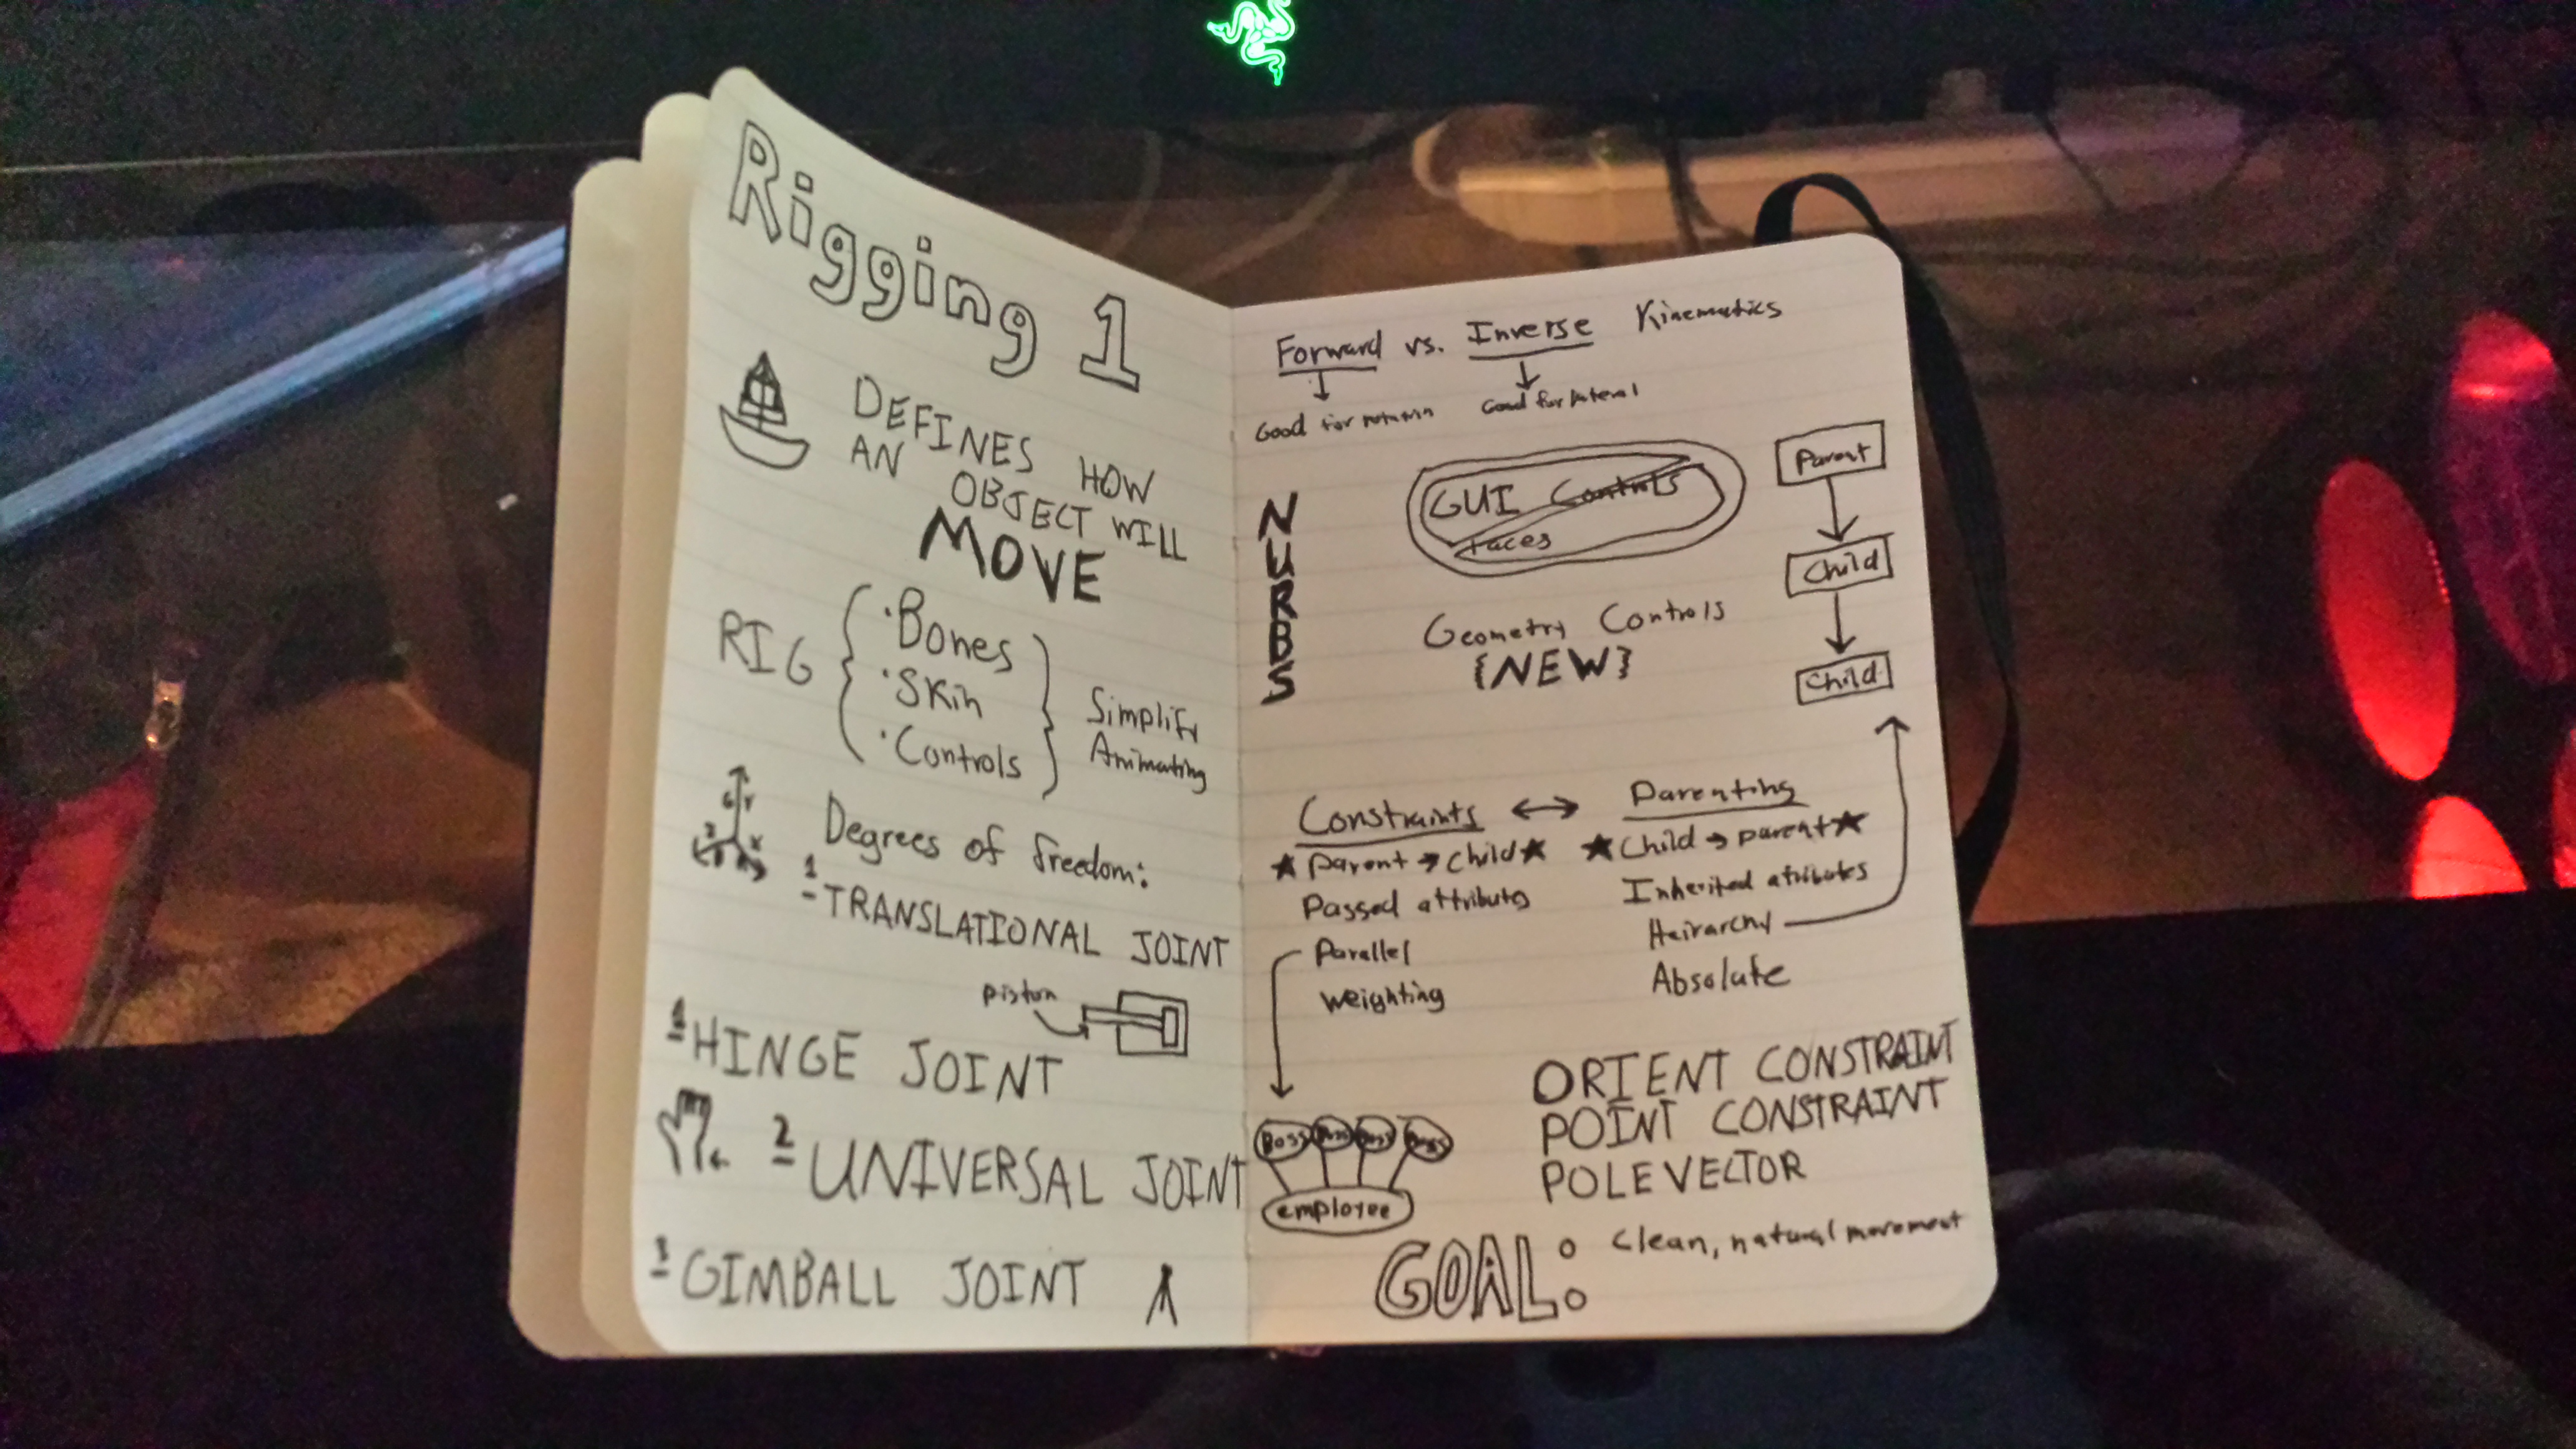 Rigging 1
DEFINES HOW
AN OBJECT WILL
MOVE
RIG
· Bones
· Skin
· Controls
Simplify
Animating
Y
Z
X
Degrees of freedom:
1 TRANSLATIONAL JOINT
piston
HINGE JOINT
2 UNIVERSAL JOINT
GIMBALL JOINT
Forward vs. Inverse Kinematics
Good for
Good for lateral
NURBS
GUI Controls
faces
Geometry Controls
{NEW}
Parent
Child
Child
Constraints ↔ Parenting
★ Parent → Child ★
Passed attributes
Parallel
Weighting
★ Child → parent ★
Inherited atributes
Heirarchy
Absolute
Boss Boss Boss Boss
employee
ORIENT CONSTRAINT
POINT CONSTRAINT
POLE VECTOR
GOAL: Clean, natural movement